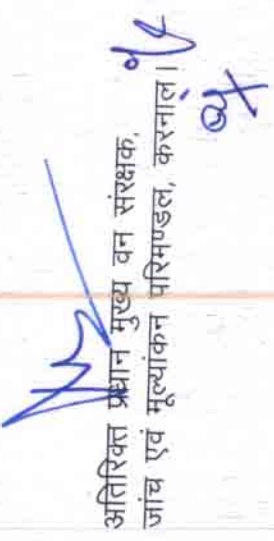 अतिरिक्त प्रधान मुख्य वन संरक्षक,
जांच एवं मूल्यांकन परिमण्डल, करनाल।